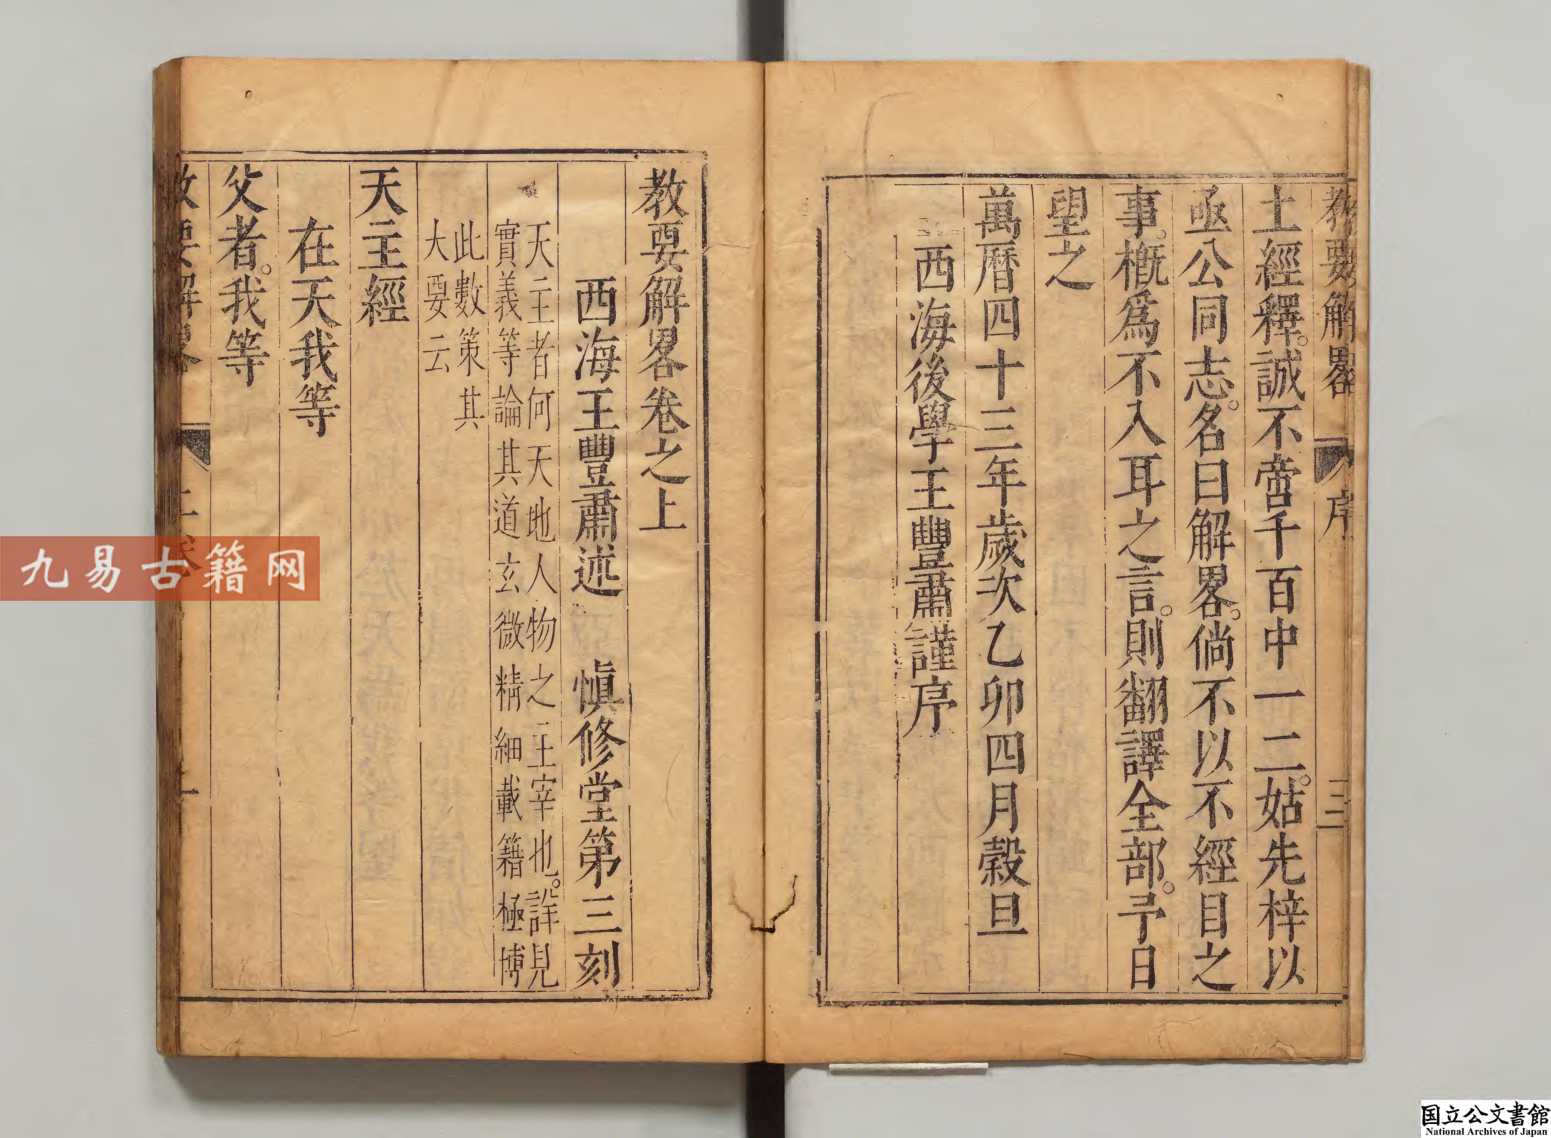 教要解畧
序
三
土經釋。誠不啻千百中一二。姑先梓以
亟公同志。名曰解畧。倘不以不經目之
事。槪爲不入耳之言。則翻譯全部。予日
望之
萬曆四十三年歲次乙卯四月穀旦
西海後學王豐肅謹序
教要解畧卷之上
西海王豐肅述　愼修堂第三刻
天主者何天地人物之主宰也。詳見
實義等論其道玄微精細載籍極博
此數策其
大要云
天主經
在天我等
父者。我等
教要解畧
上卷
一
九易古籍网
国立公文書館
National Archives of Japan